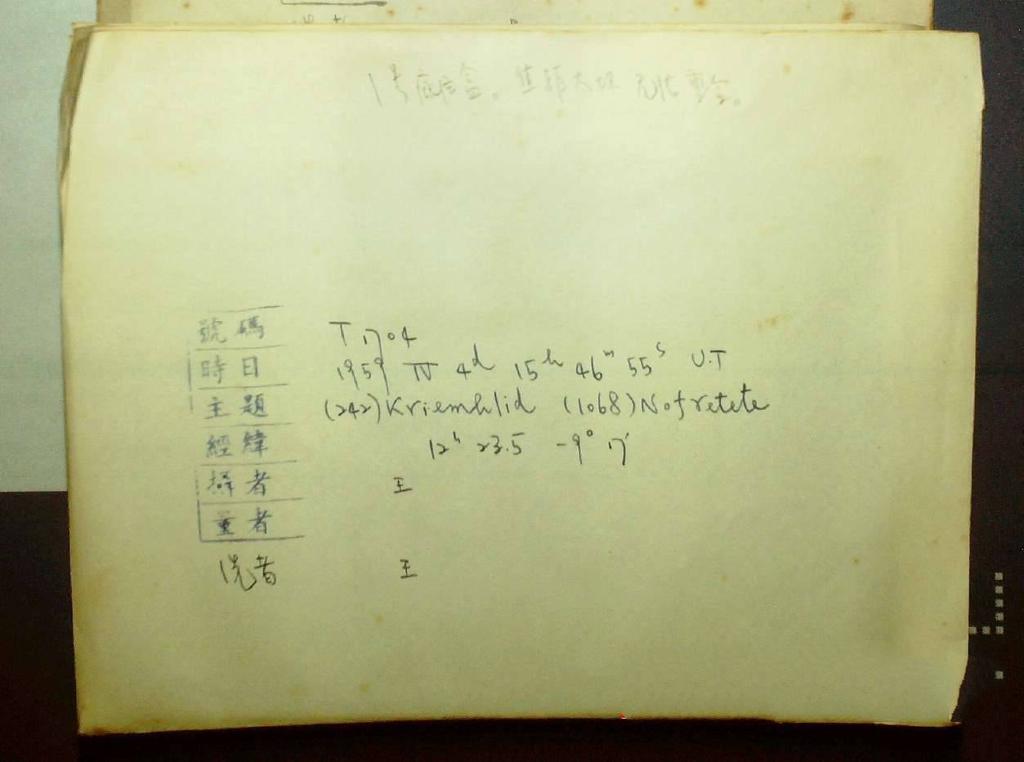 1号底片盒。
號碼 T 1704
時日 1959 IV 4d 15h 46m 55s U.T
主題 (242)Kriemhlid (1068)Nofretete
經緯 12h 23.5 -9° 17'
攝者 王
量者
洗者 王